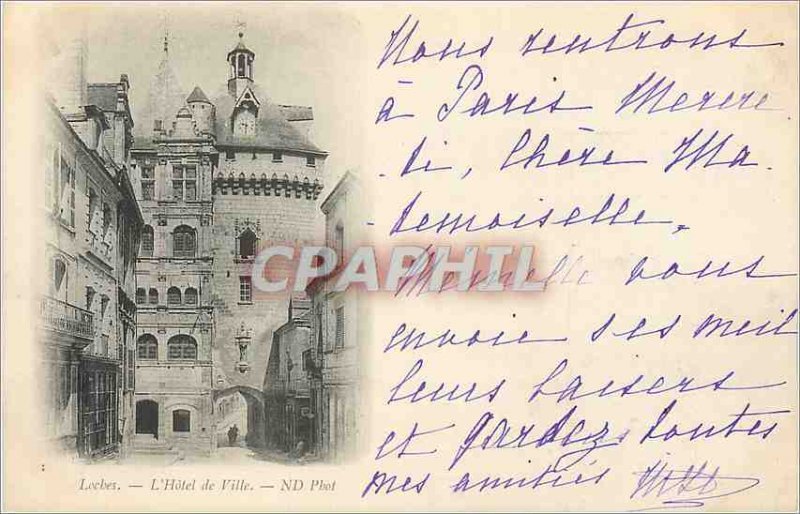 Nous rentrons
à Paris Mercre
di, Chère Ma-
demoiselle,
vous
envoie ses meil
leurs baisers
et gardez toutes
mes amitiés
CPARPHIL.COM
Loches. — L'Hôtel de Ville. — ND Phot